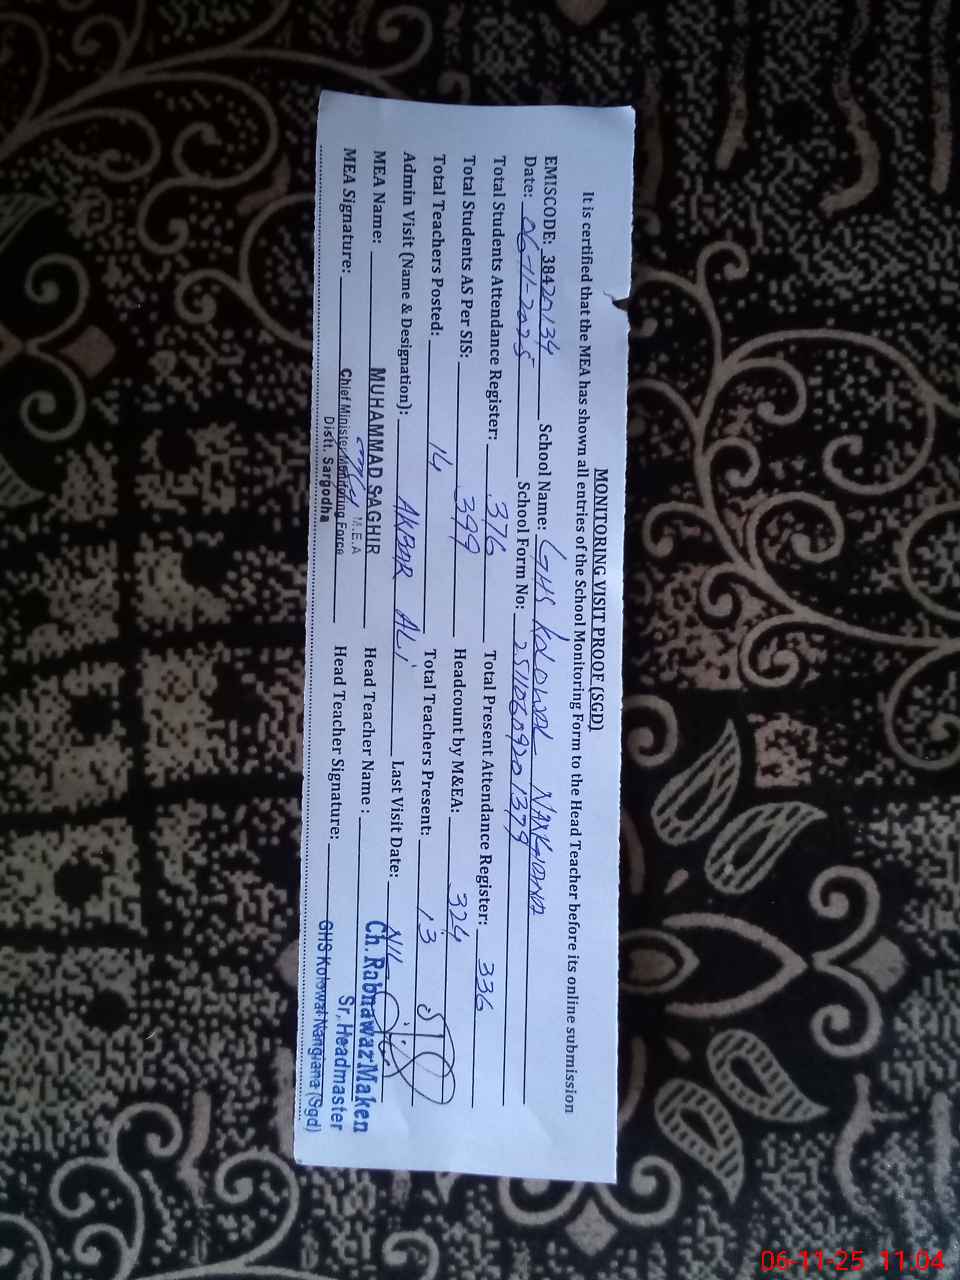 MONITORING VISIT PROOF (SGD)
It is certified that the MEA has shown all entries of the School Monitoring Form to the Head Teacher before its online submission
EMISCODE: 38420134 School Name: GHS KOLOWAL NANGIANA
Date: 06-11-2025 School Form No: 25110609201379
Total Students Attendance Register: 376 Total Present Attendance Register: 336
Total Students AS Per SIS: 399 Headcount by M&EA: 324
Total Teachers Posted: 14 Total Teachers Present: 13
Admin Visit (Name & Designation): AKBAR ALI Last Visit Date: NIL
MEA Name: MUHAMMAD SAGHIR Head Teacher Name : Ch. Rabnawaz Maken
M.E.A
MEA Signature: Chief Minister Monitoring Force Head Teacher Signature: Sr, Headmaster
Distt. Sargodha GHS Kolowal Nangiana (Sgd)
06-11-25 11:04